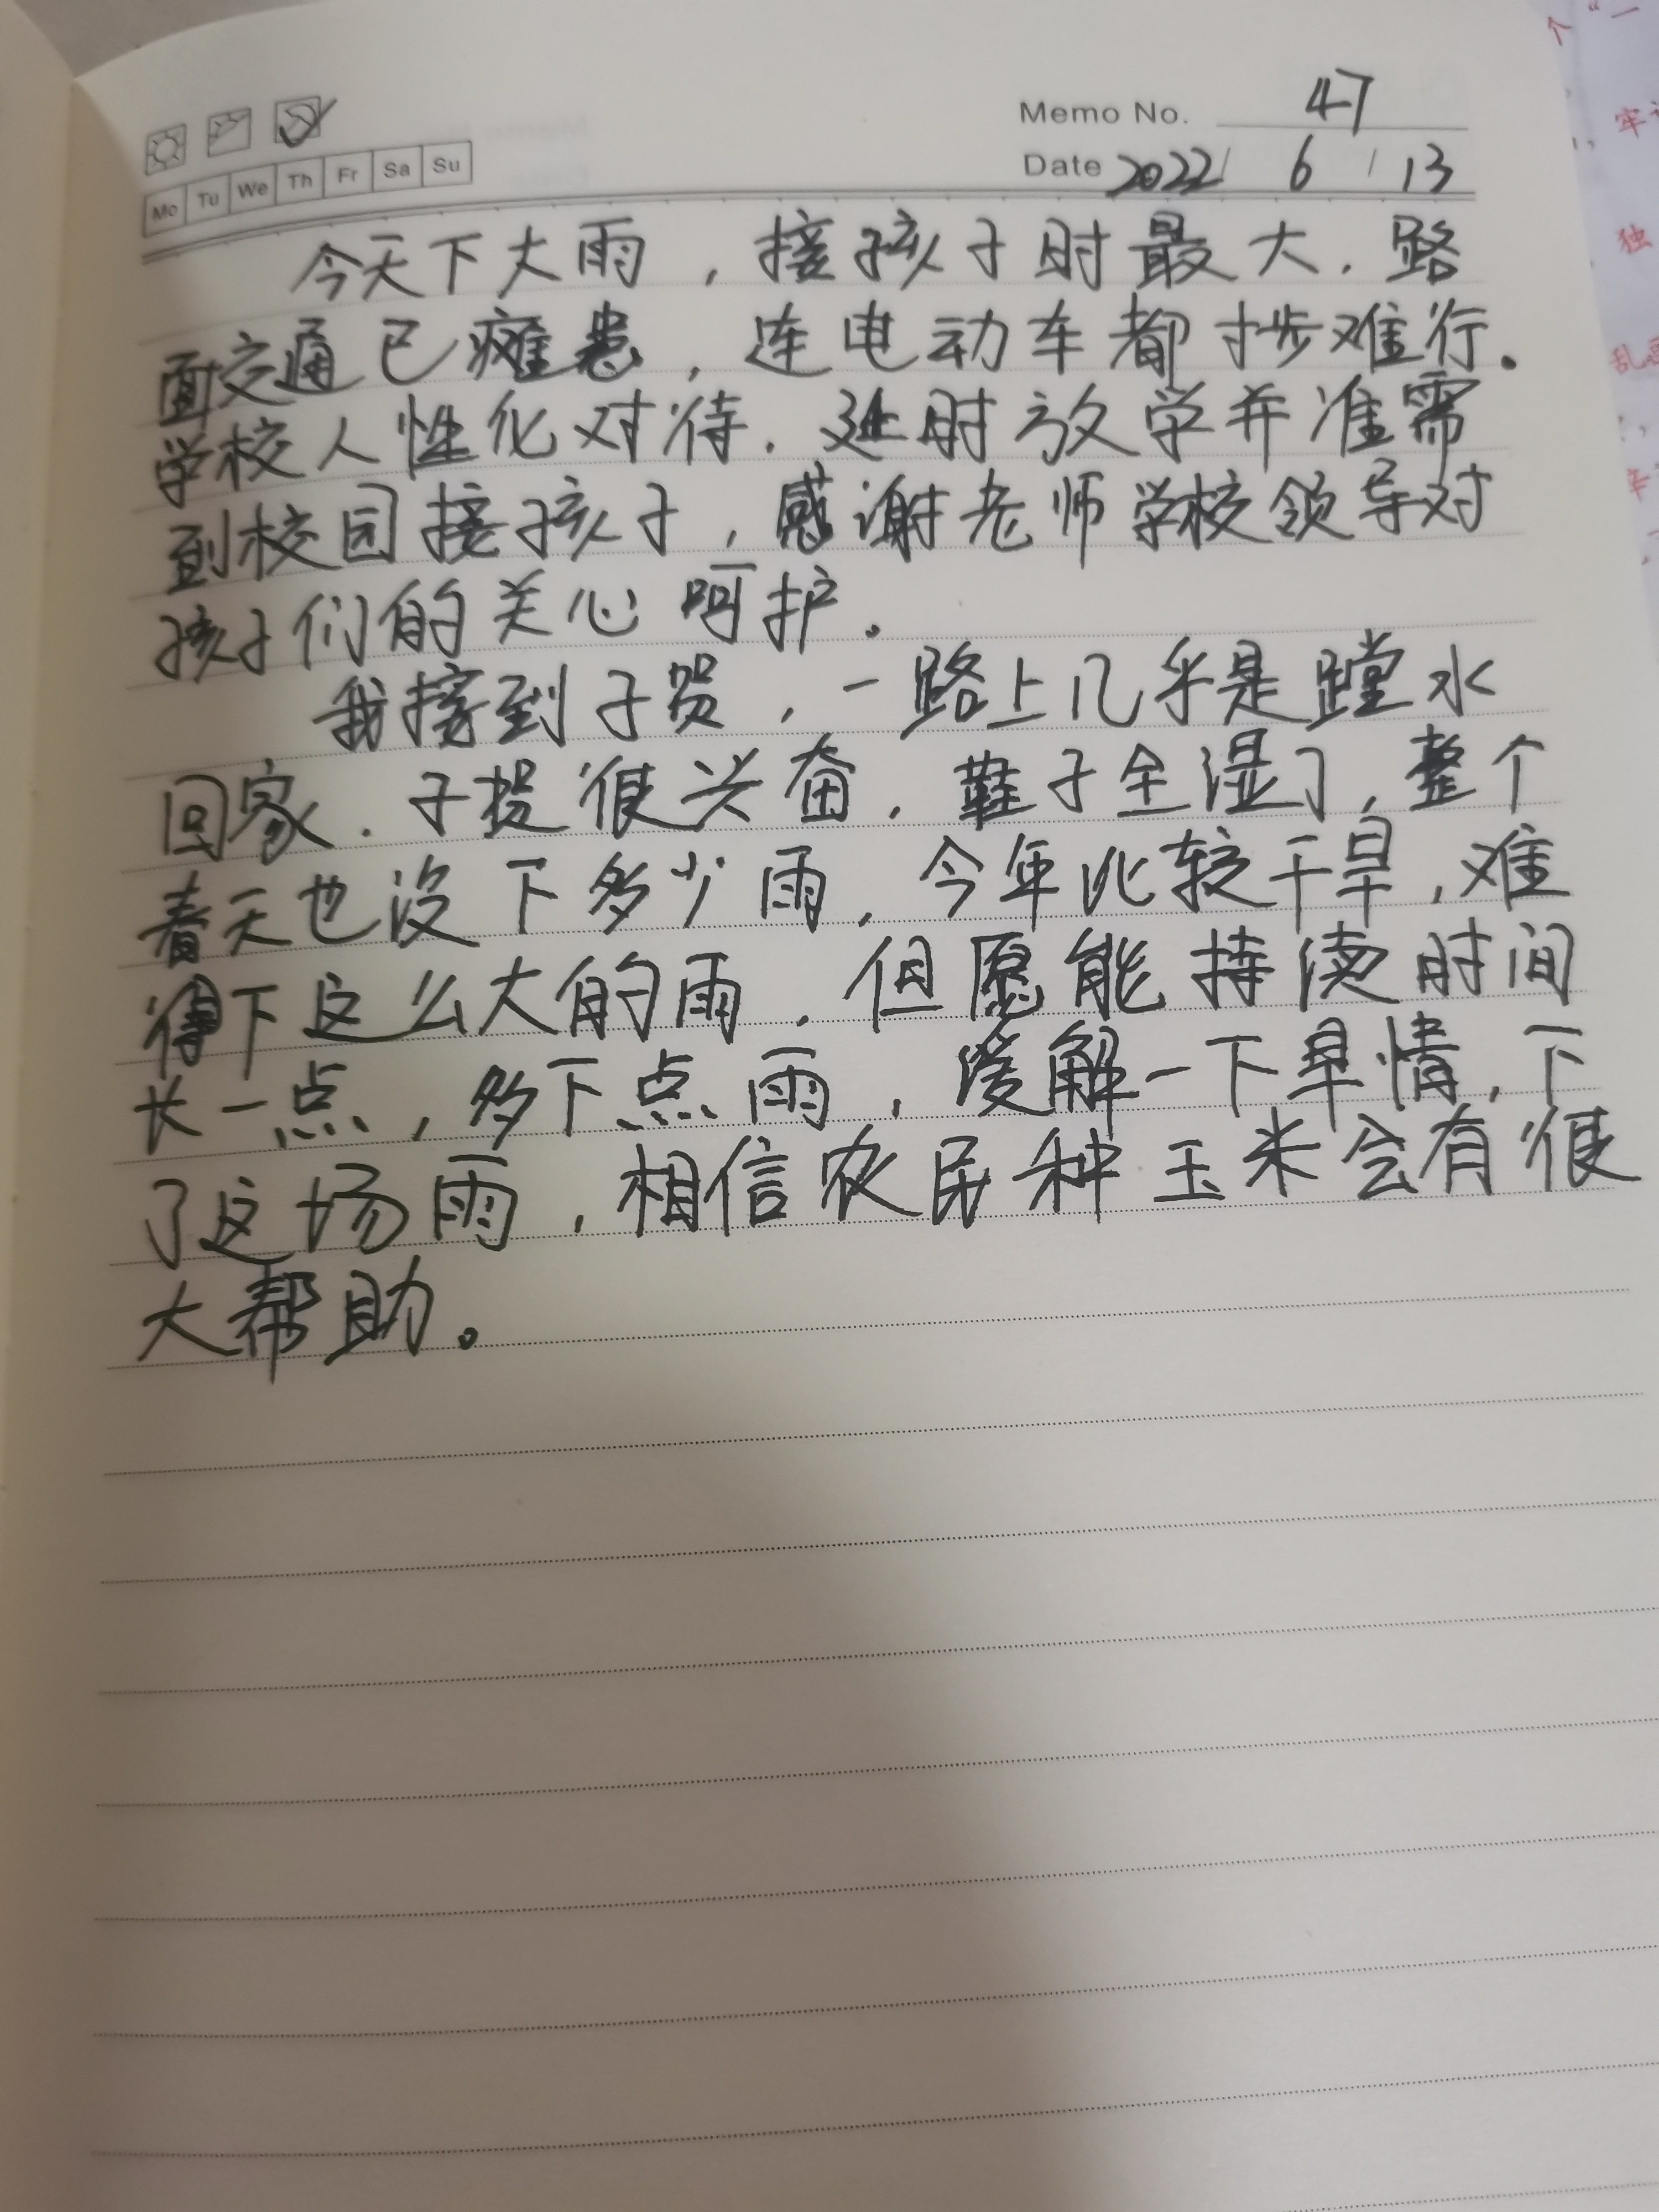 Memo No. 47
Mo Tu We Th Fr Sa Su
Date 2022 / 6 / 13
今天下大雨，接孩子时最大，路
面交通已瘫患，连电动车都寸步难行。
学校人性化对待，延时放学并准需
到校园接孩子，感谢老师学校领导对
孩子们的关心呵护。
我接到子贺，一路上几乎是蹚水
回家，子很兴奋，鞋子全湿了，整个
春天也没下多少雨，今年比较干旱，难
得下这么大的雨，但愿能持续时间
长一点，多下点雨，缓解一下旱情，下
了这场雨，相信农民种玉米会有很
大帮助。
个“一
牢
独
乱